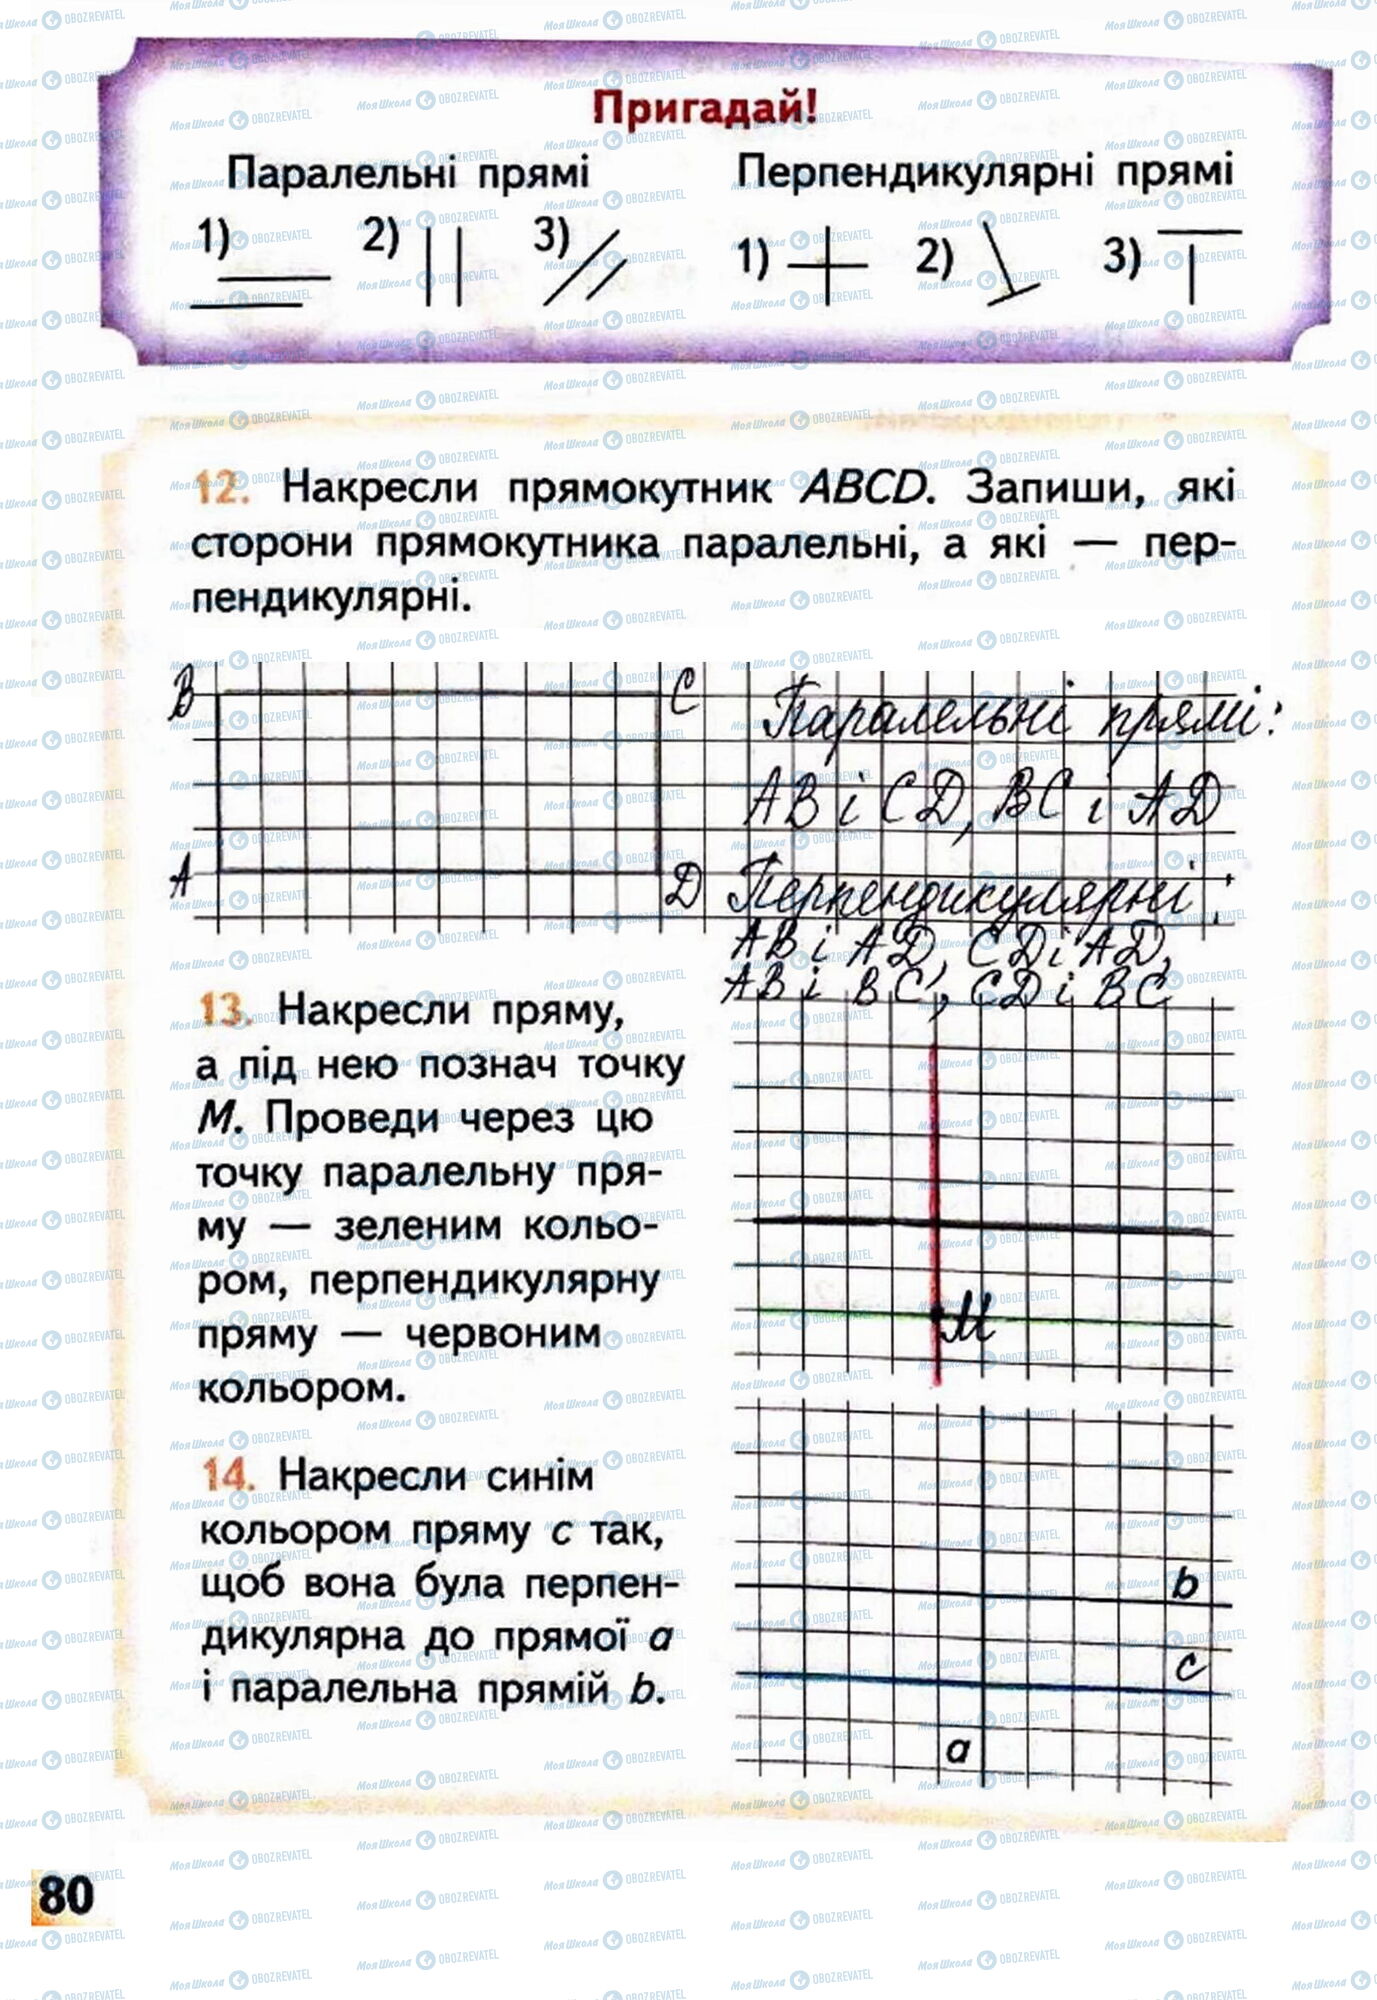 Пригадай!
Паралельні прямі Перпендикулярні прямі
1) 2) 3) 1) 2) 3)
12. Накресли прямокутник ABCD. Запиши, які
сторони прямокутника паралельні, а які — пер-
пендикулярні.
B C Паралельні прямі:
AB і CD, BC і AD
A D Перпендикулярні:
AB і AD, CD і AD,
AB і BC, CD і BC
13. Накресли пряму,
а під нею познач точку
М. Проведи через цю
точку паралельну пря-
му — зеленим кольо-
ром, перпендикулярну
пряму — червоним
кольором.
М
14. Накресли синім
кольором пряму c так,
щоб вона була перпен-
дикулярна до прямої a
і паралельна прямій b.
b
c
a
80
МояШкола OBOZREVATEL